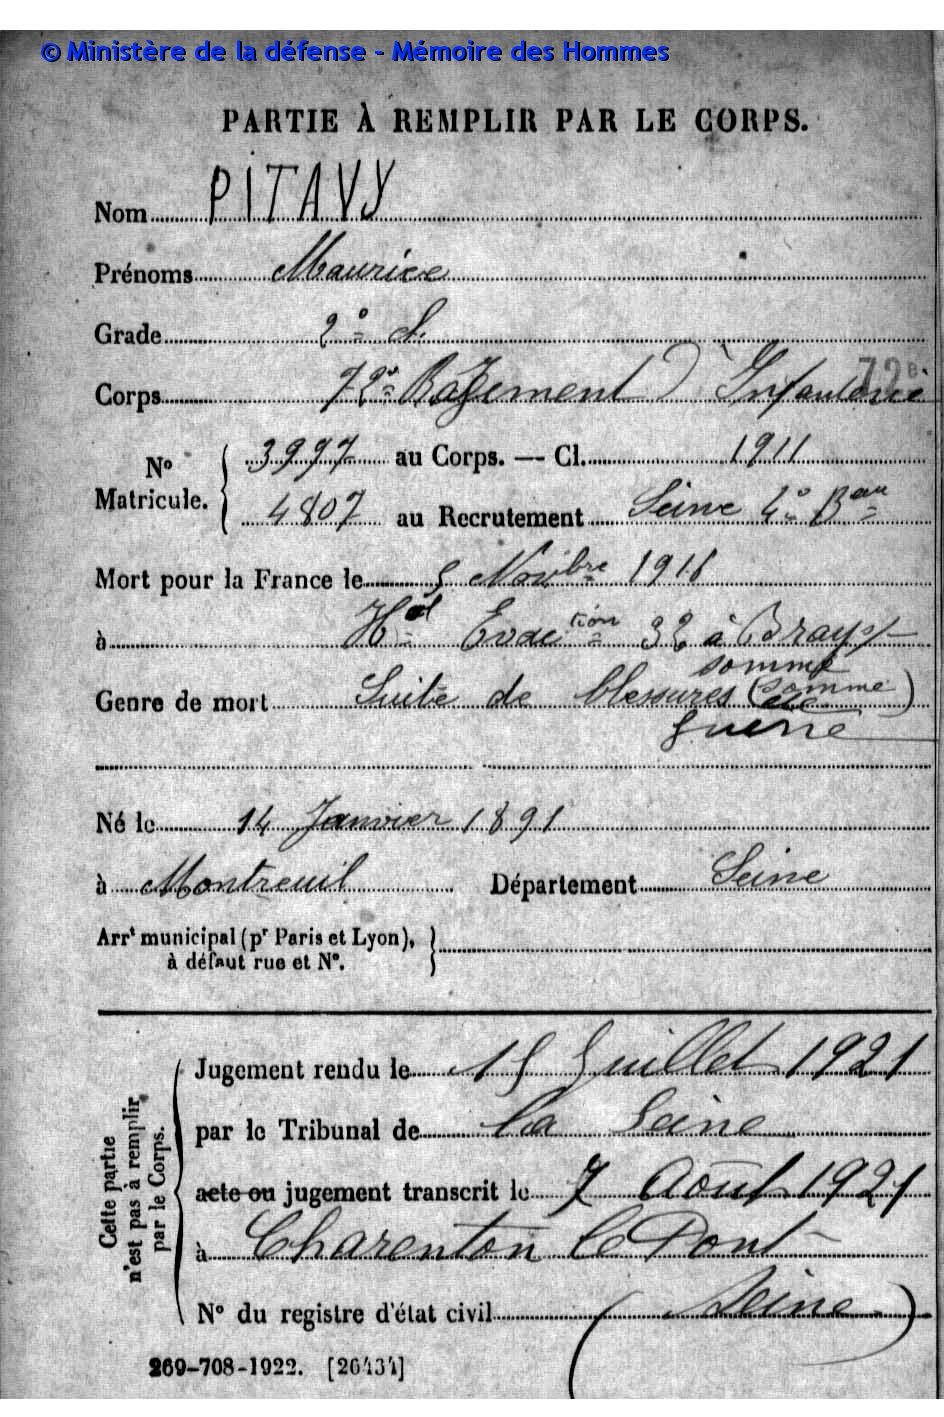 © Ministère de la défense - Mémoire des Hommes
PARTIE À REMPLIR PAR LE CORPS.
Nom PITAVY
Prénoms Maurice
Grade 2e S.
Corps 72e Régiment d'Infanterie
72e
No Matricule. { 3997 au Corps. — Cl. 1911
4807 au Recrutement Seine 4e Bau
Mort pour la France le 5 Novbre 1916
à Hal Evaction 32 à Bray s/
somme
Genre de mort Suite de blessures (Somme)
de
guerre
Né le 14 Janvier 1891
à Montreuil Département Seine
Arrt municipal (pr Paris et Lyon), }
à défaut rue et No.
Cette partie n'est pas à remplir par le Corps.
Jugement rendu le 15 Juillet 1921
par le Tribunal de la Seine
acte ou jugement transcrit le 7 Août 1921
à Charenton le Pont
No du registre d'état civil (Seine)
269-708-1922. [26434]